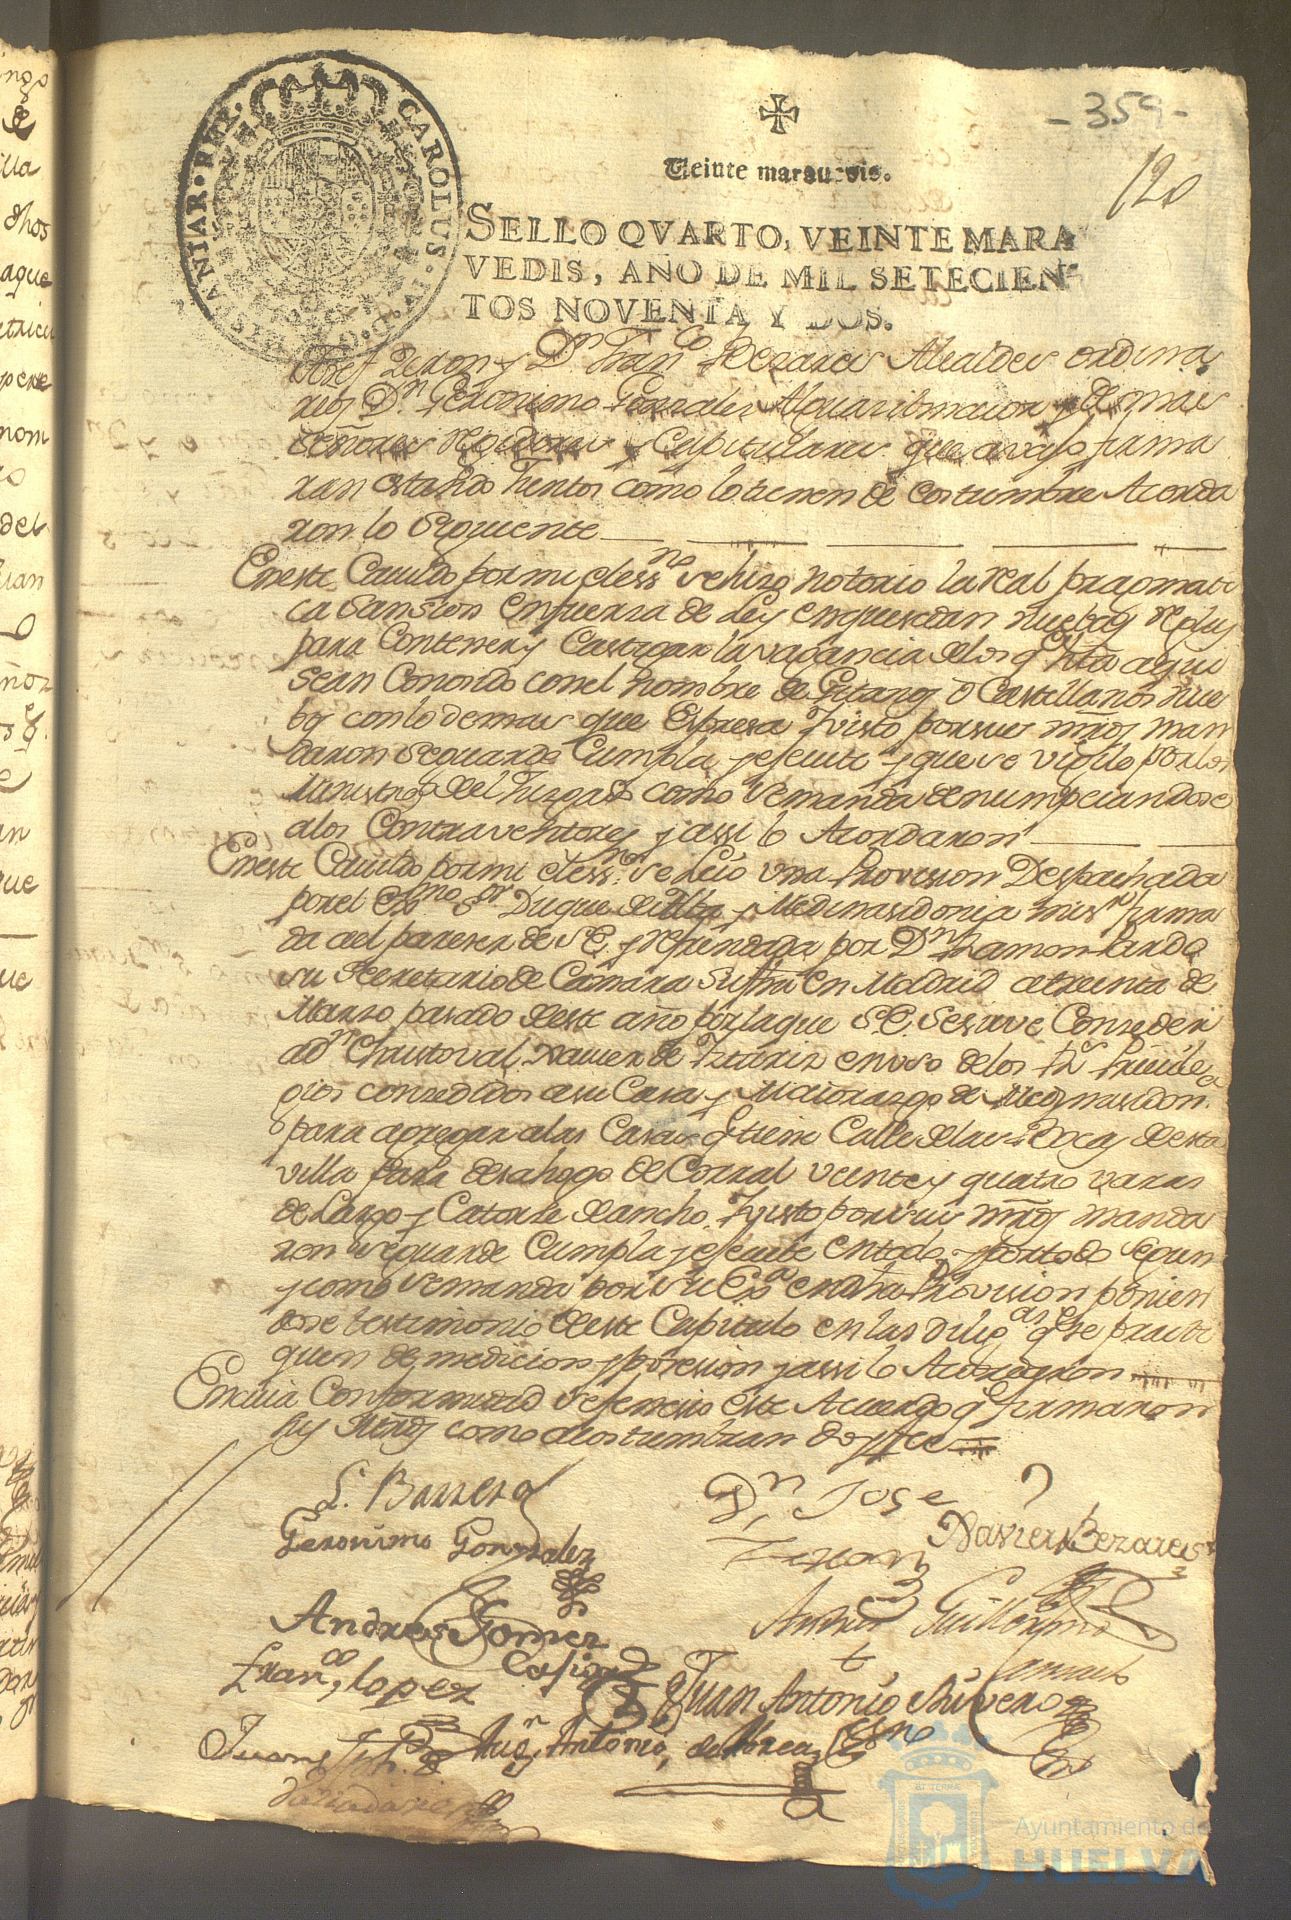 - 359 -
120
Veinte maravedis.
SELLO QVARTO, VEINTE MARA
VEDIS, AÑO DE MIL SETECIEN-
TOS NOVENTA Y DOS.
CAROLUS · IV · D · G · HISPANIAR · REX ·
Josef Zeron y Dn. Franco. Bezares Alcaldes ordina
rios Dn. Geronimo Gonzales Alguacil maior y demas
señores Rejidores y Capitulares que avajo firma
ran estando Juntos como lo tienen de costumbre Acorda
ron lo siguiente
En este Cavildo por mi el essno. se hizo notorio la Real pragmati
ca Sansion en fuerza de Ley en que se dan nuebas Reglas
para Contener y Castigar la vagancia de los q. hta. aqui
sean Conosido con el nombre de Gitanos o Castellanos nue
bos con lo demas que Espresa Y visto por sus mrds. man
daron se guarde Cumpla y ejecute y que se vijile por los
Ministros del Juzgado como se manda denumpciandose
a los Contraventores y assi lo Acordaron
En este Cavildo por mi el essno. se Leio una Provision Despachada
por el Exmo. Sor. Duque de Alba y Medinasidonia mi sr. firma
da al pareser de S.E. y refrendada por Dn. Ramon Pardo
su Secretario de Camara Su fha en Madrid a treinta de
Marzo pasado de este año por la que S.E. se sirve Conseder
a dn. Christoval Xavier de Ytariz en uso de los Rs. Privile
gios consedidos a su Casa y Maiorazgo de Medinasidona.
para agregar a las Casas q. tiene Calle de las Bocas de esta
villa para desahogo de Corral veinte y quatro varas
de Largo y Catorse de ancho. Y visto por sus mrds. manda
ron se guarde Cumpla y ejecute en todo y por todo segun
y como se manda por su Exa. en dha Provision ponien
dose testimonio de este Capitulo en las Diligas. q. se practi
quen de medicion y posesion y assi lo Acordaron
En cuia Conformidad se fenesio este Acuerdo q. firmaron
sus Mrds como acostumbran doy fee
L. Barrera
Dn. Jose
Zeron
Xavier Bezares
Geronimo Gonzalez
Andres Gomez
Casizas
Antto Guillermo
Franco. Lopez
Juan Antonio Rivero
Juan
Antonio, de
Essno
Ayuntamiento de
HUELVA